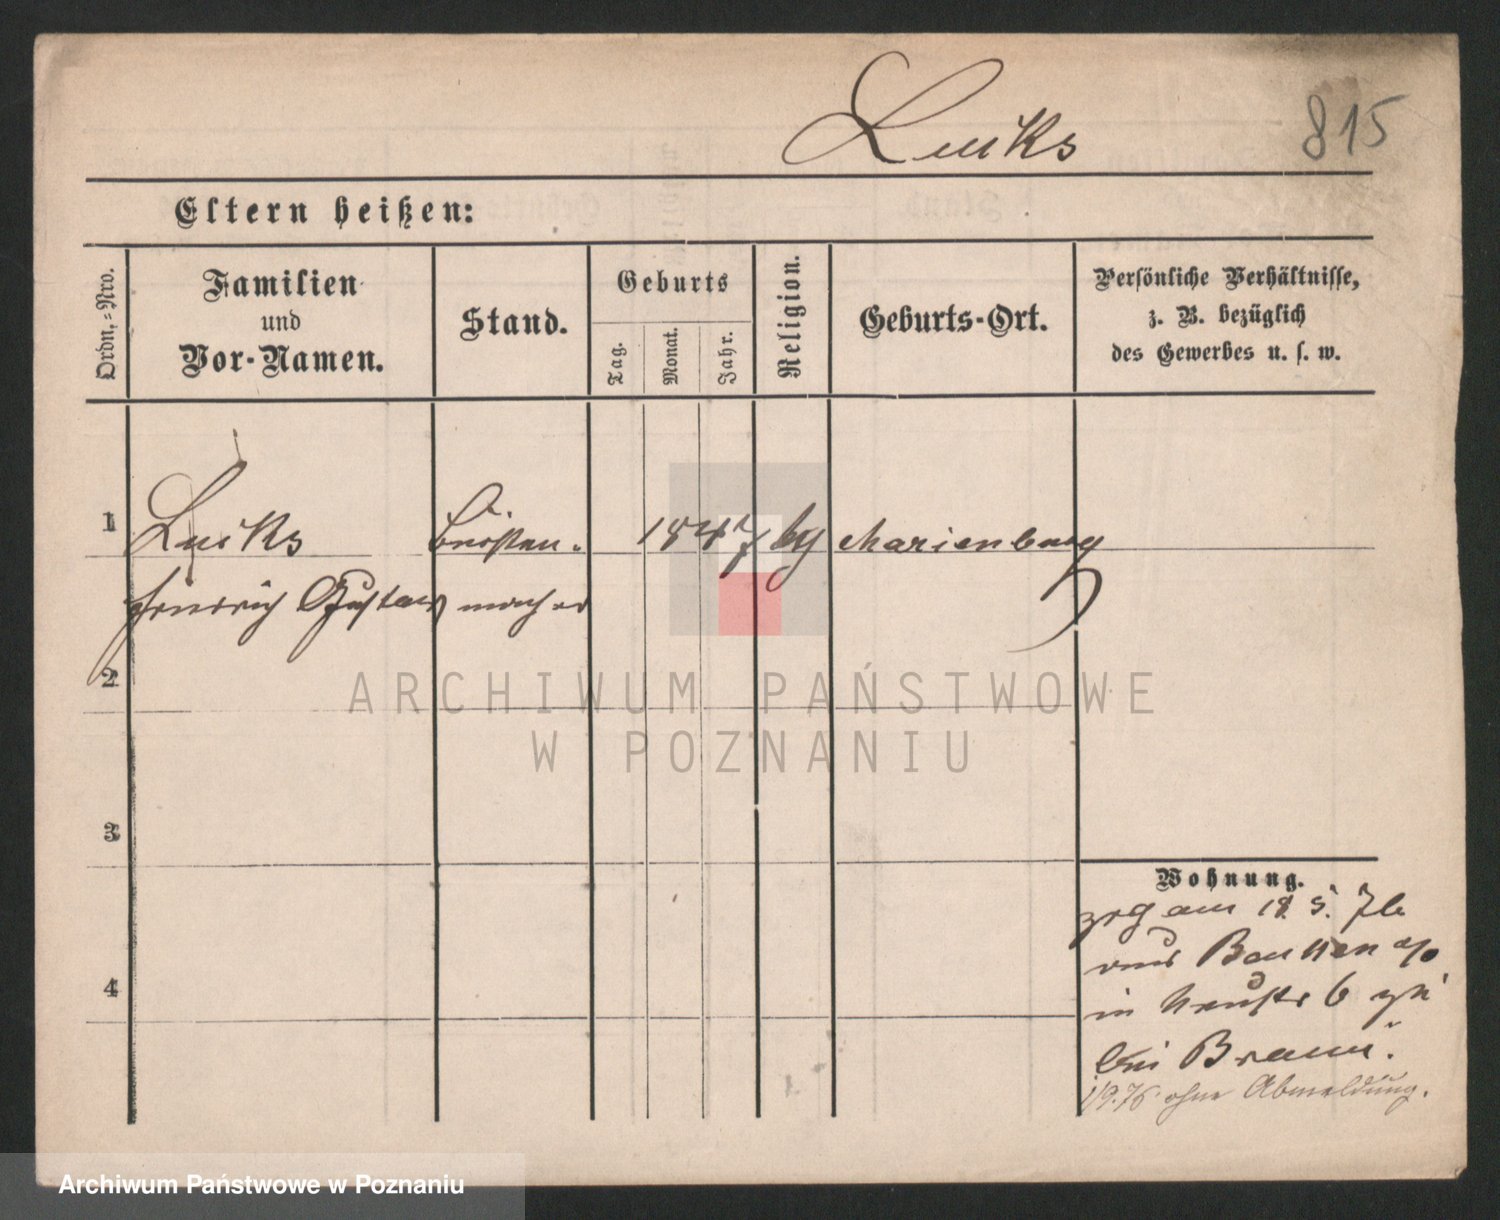 Luiks
815
Eltern heißen:
Ordn.-Nro.
Familien
und
Vor-Namen.
Stand.
Geburts
Tag.
Monat.
Jahr.
Religion.
Geburts-Ort.
Persönliche Verhältnisse,
z. B. bezüglich
des Gewerbes u. s. w.
1
Luiks
Friedrich Gustav
Bürsten-
macher
1847
Marienburg
2
3
4
Wohnung.
zog am 18. 5. 76
aus
in 6
bei Braun.
1/9.76 ohne Abmeldung.
ARCHIWUM PAŃSTWOWE
W POZNANIU
Archiwum Państwowe w Poznaniu